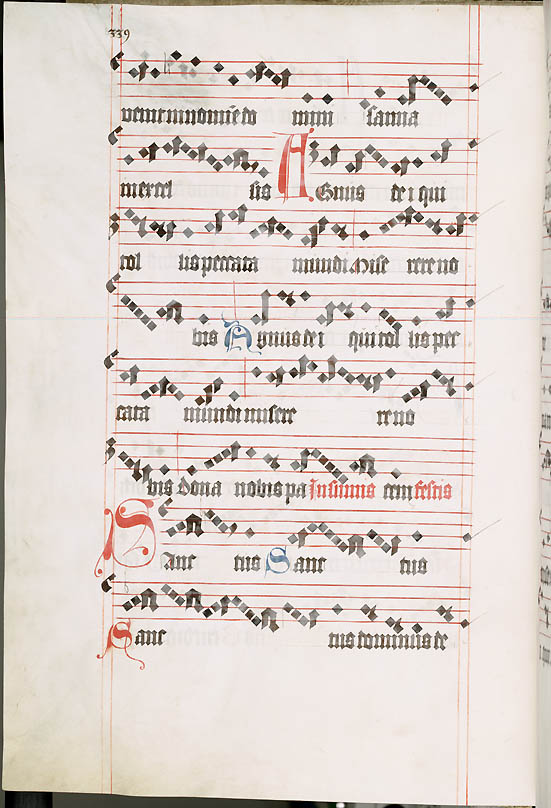 339
venit in no mi ne do mini sanna
in excel sis Agnus de i qui
tol lis peccata mundi Mise rere no
bis Agnus de i qui tol lis pec
cata mundi misere re no
bis dona nobis pa In summis cem festis
Sanc tus Sanc tus
Sanc tus dominus de